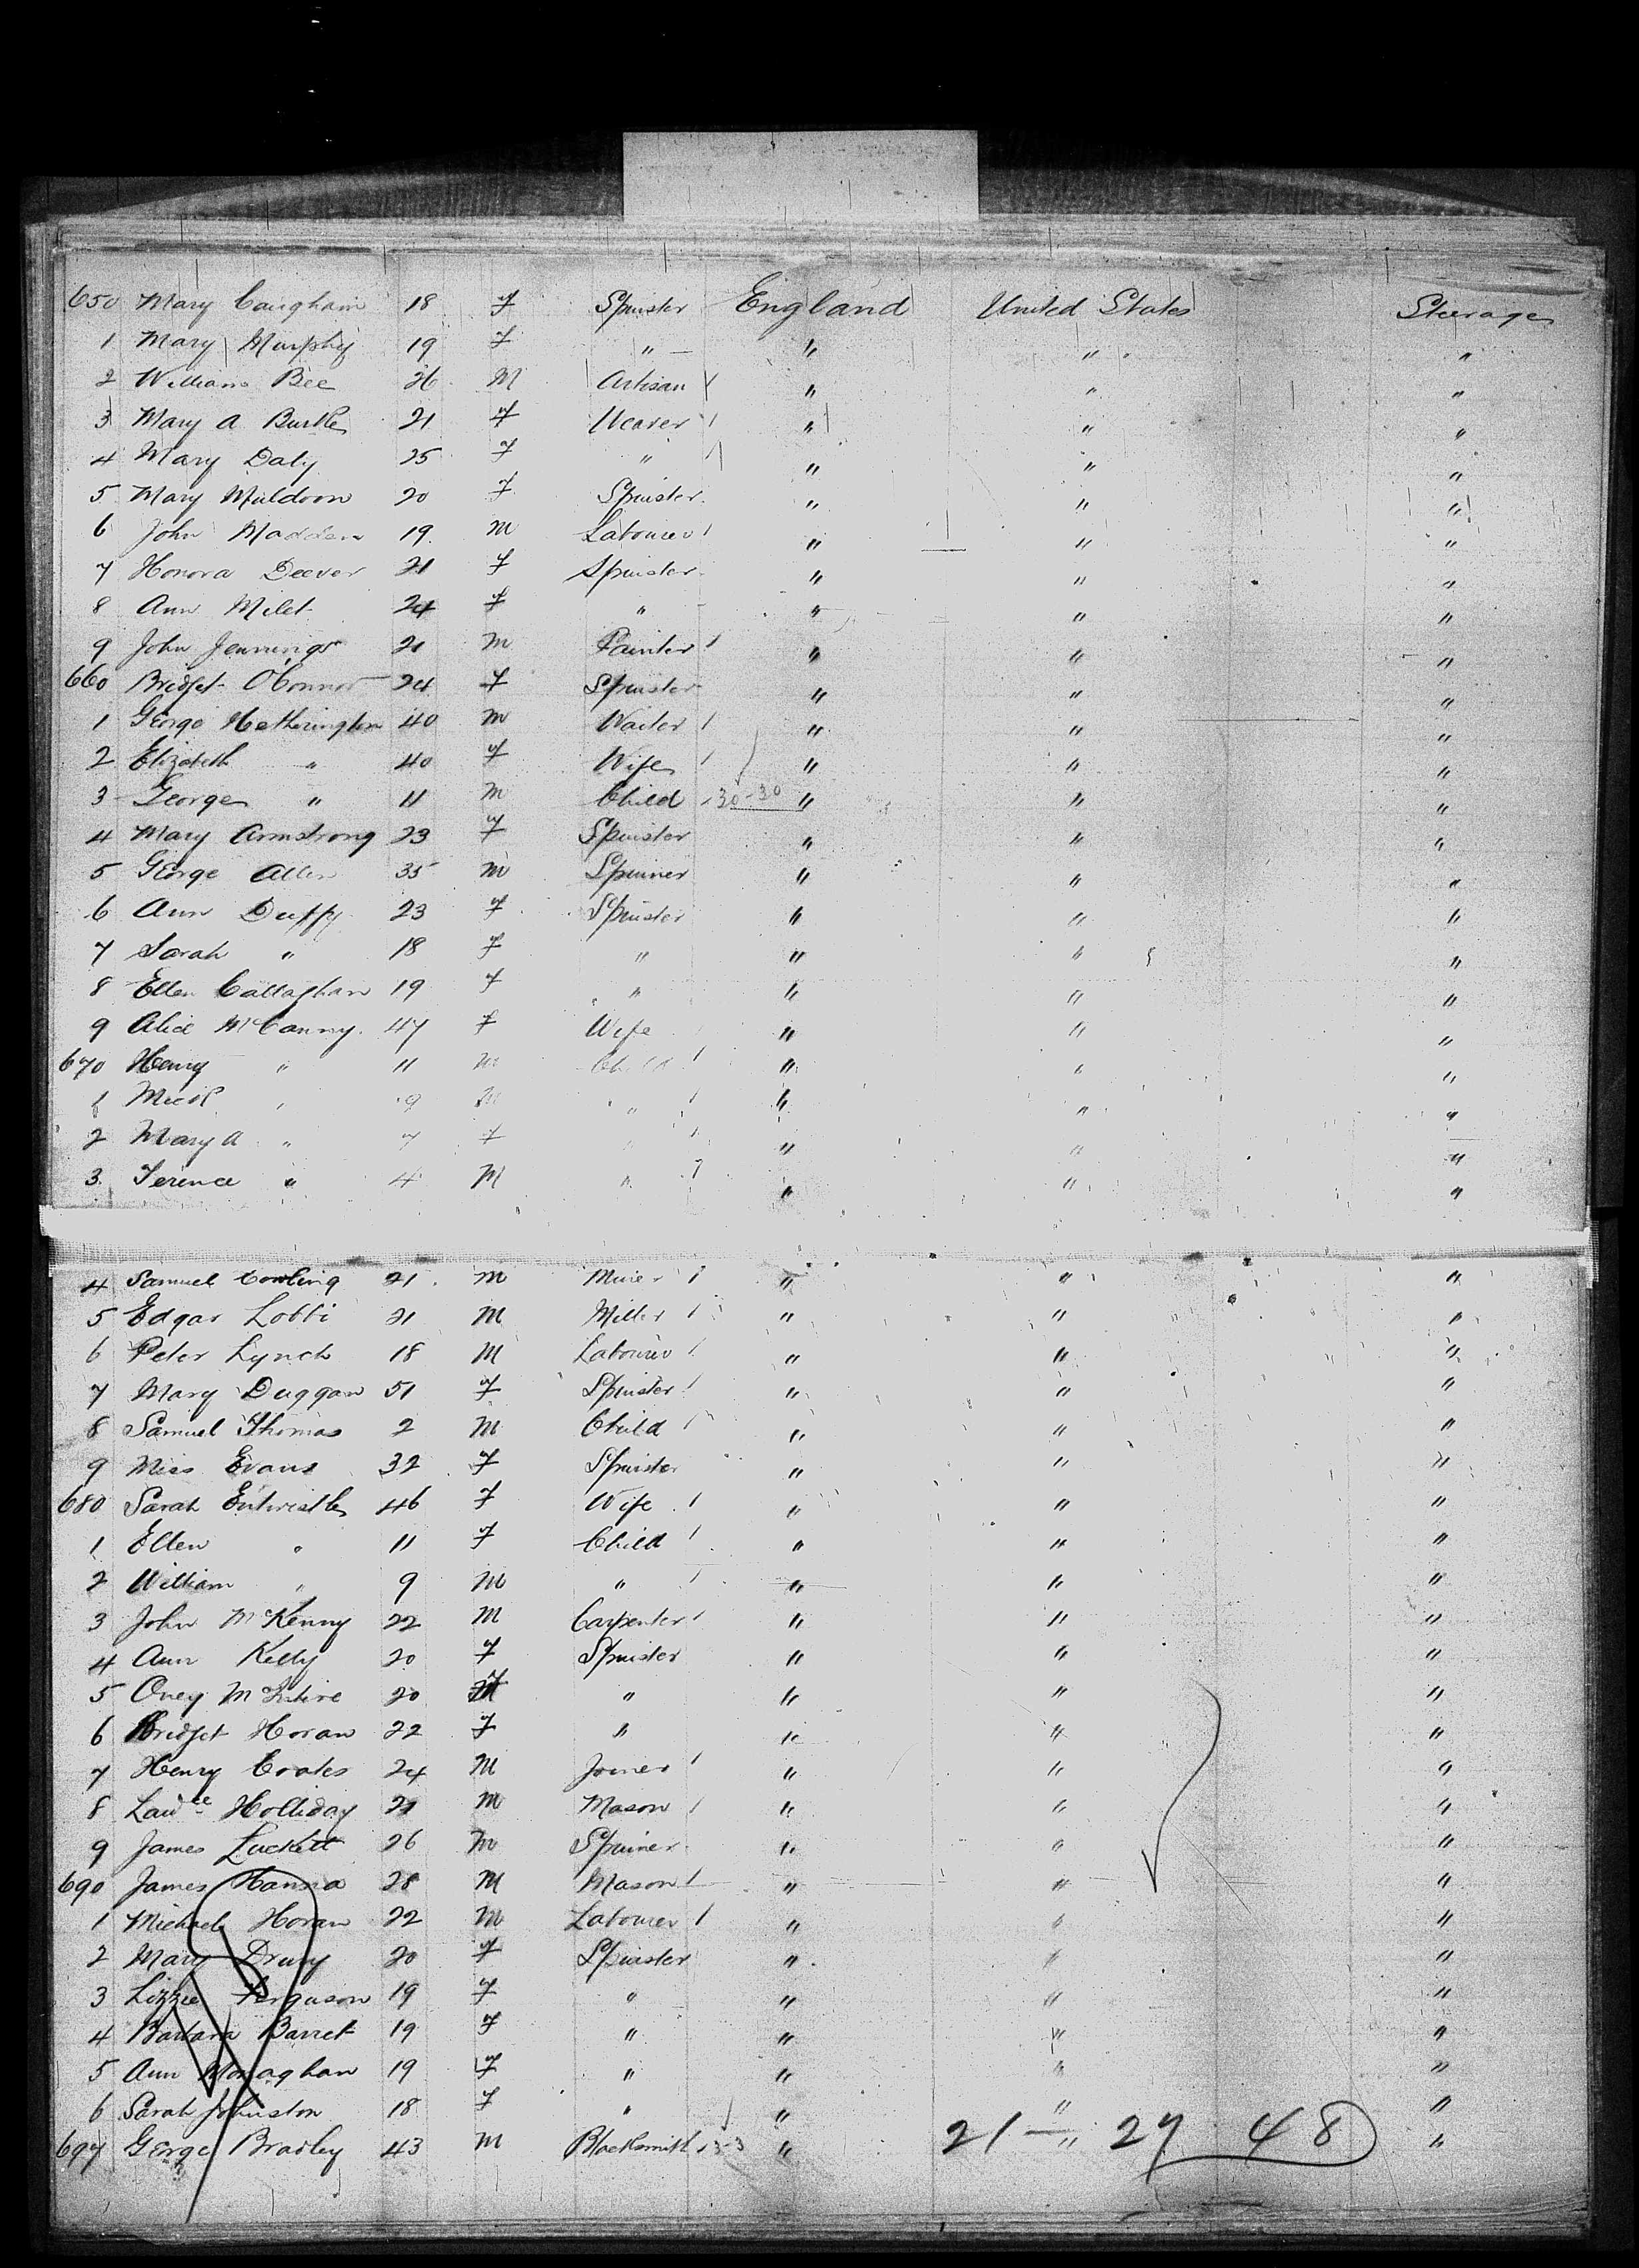 650 Mary Caugham 18 f Spinster England United States Steerage
1 Mary Murphy 19 f " " " "
2 William Bee 26 M Artisan " " "
3 Mary A Burke 21 f Weaver " " "
4 Mary Daly 25 f " " " "
5 Mary Muldoon 20 f Spinster " " "
6 John Madden 19 m Labourer " " "
7 Honora Deever 21 f Spinster " " "
8 Ann Milet 24 f " " " "
9 John Jennings 21 m Painter " " "
660 Bridget O'Connor 24 f Spinster " " "
1 George Hetherington 40 m Waiter " " "
2 Elizabeth " 40 f Wife " " "
3 George " 11 m Child 30-30 " " "
4 Mary Armstrong 23 f Spinster " " "
5 George Allen 35 m Spinner " " "
6 Ann Duffy 23 f Spinster " " "
7 Sarah " 18 f " " " "
8 Ellen Callaghan 19 f " " " "
9 Alice McCanny 47 f Wife " " "
670 Henry " 11 m Child " " "
1 " 9 M " " " "
2 Mary A " 7 f " " " "
3 Terence " 4 M " " " "
4 Samuel Cowling 21 m Miner " " "
5 Edgar Lobbi 21 M Miller " " "
6 Peter Lynch 18 M Labourer " " "
7 Mary Duggan 51 f Spinster " " "
8 Samuel Thomas 2 M Child " " "
9 Miss Evans 32 f Spinster " " "
680 Sarah Entwistle 46 f Wife " " "
1 Ellen " 11 f Child " " "
2 William " 9 M " " " "
3 John McKenny 22 M Carpenter " " "
4 Ann Kelly 20 f Spinster " " "
5 Oney McIntire 20 f " " " "
6 Bridget Horan 22 f " " " "
7 Henry Coates 24 M Joiner " " "
8 Lawce Holliday 21 m Mason " " "
9 James Luckett 26 m Spinner " " "
690 James Hanna 28 M Mason " " "
1 Michael Horan 22 m Labourer " " "
2 Mary Drury 20 f Spinster " " "
3 Lizzie Ferguson 19 f " " " "
4 Barbara Barret 19 f " " " "
5 Ann Monaghan 19 f " " " "
6 Sarah Johnston 18 f " " " "
697 George Bradley 43 m Blacksmith 3-3 " " "
21 — 27 48